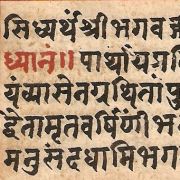 सिध्यर्थेश्रीभगव
ध्यानं॥पार्थायप्र
यंव्यासेनग्रथितांपु
द्वैतामृतवर्षिणींभ
मनुसंदधामिभग